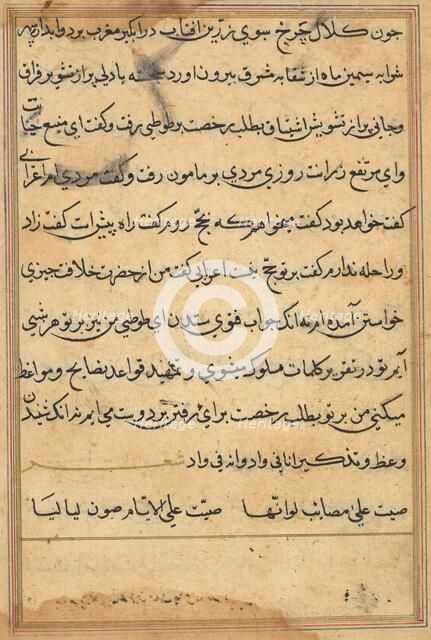 چون کلال چرخ سبوی زرین افتاب در ابگیر مغرب برد و ابدارچه
شوابه سیمین ماه از سقابه مشرق بیرون اورد خجسته با دلی پر از تشویر فراق
و جانی پر از تشویش اشتیاق بطلب رخصت بر طوطی رفت و کفت ای منبع جنایت
و ای مرتفع زمرانت روزی مردی بر مامون رفت و کفت مردی ام اعرابی
کفت خواهد بود کفت میخواهم که بحج روم کفت راه پیش است کفت زاد
و راحله ندارم کفت بر تو حج نیست اعرابی کفت من از حضرت خلافت چیزی
خواستن آمده ام نه انک جواب فتوی ستدن ای طوطی من نیز بر تو هر شبی
آیم تو در تقریر کلمات ملوک میشوی و تمهید قواعد نصایح و مواعظ
میکنی من بر تو بطلب رخصت برای رفتن بر دوست می ایم نه انک شنیدن
وعظ و تذکیر انا فی واد وانه فی واد شعر
صبت علی مصائب لو انّها صبت علی الایّام صرن لیالیا